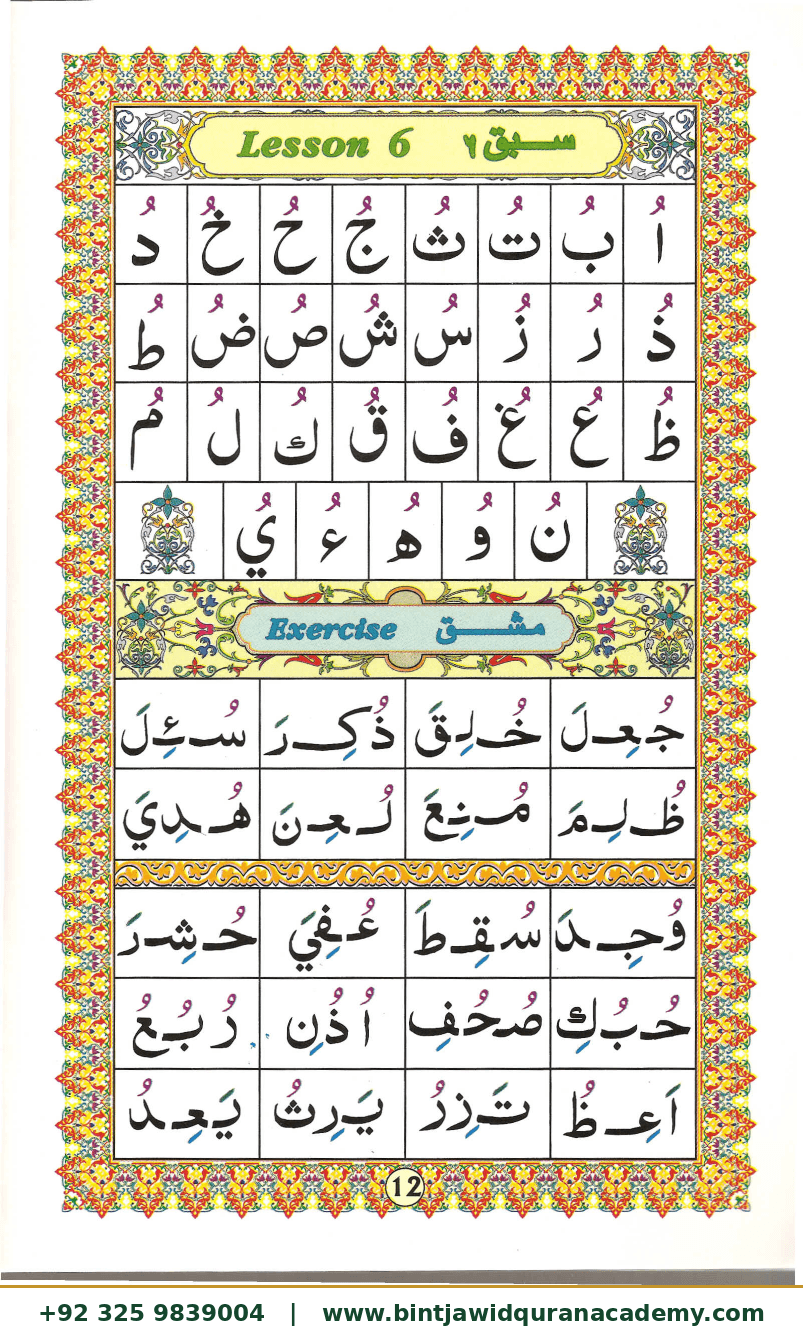 Lesson 6 سبق ٦
اُ بُ تُ ثُ جُ حُ خُ دُ
ذُ رُ زُ سُ شُ صُ ضُ طُ
ظُ عُ غُ فُ قُ كُ لُ مُ
نُ وُ هُ ءُ يُ
Exercise مشق
جُعِلَ خُلِقَ ذُكِرَ سُئِلَ
ظُلِمَ مُنِعَ لُعِنَ هُدِيَ
وُجِدَ سُقِطَ عُفِيَ حُشِرَ
حُبُكِ صُحُفِ اُذُنِ رُبُعُ
اَعِظُ تَزِرُ يَرِثُ يَعِدُ
12
+92 325 9839004 | www.bintjawidquranacademy.com